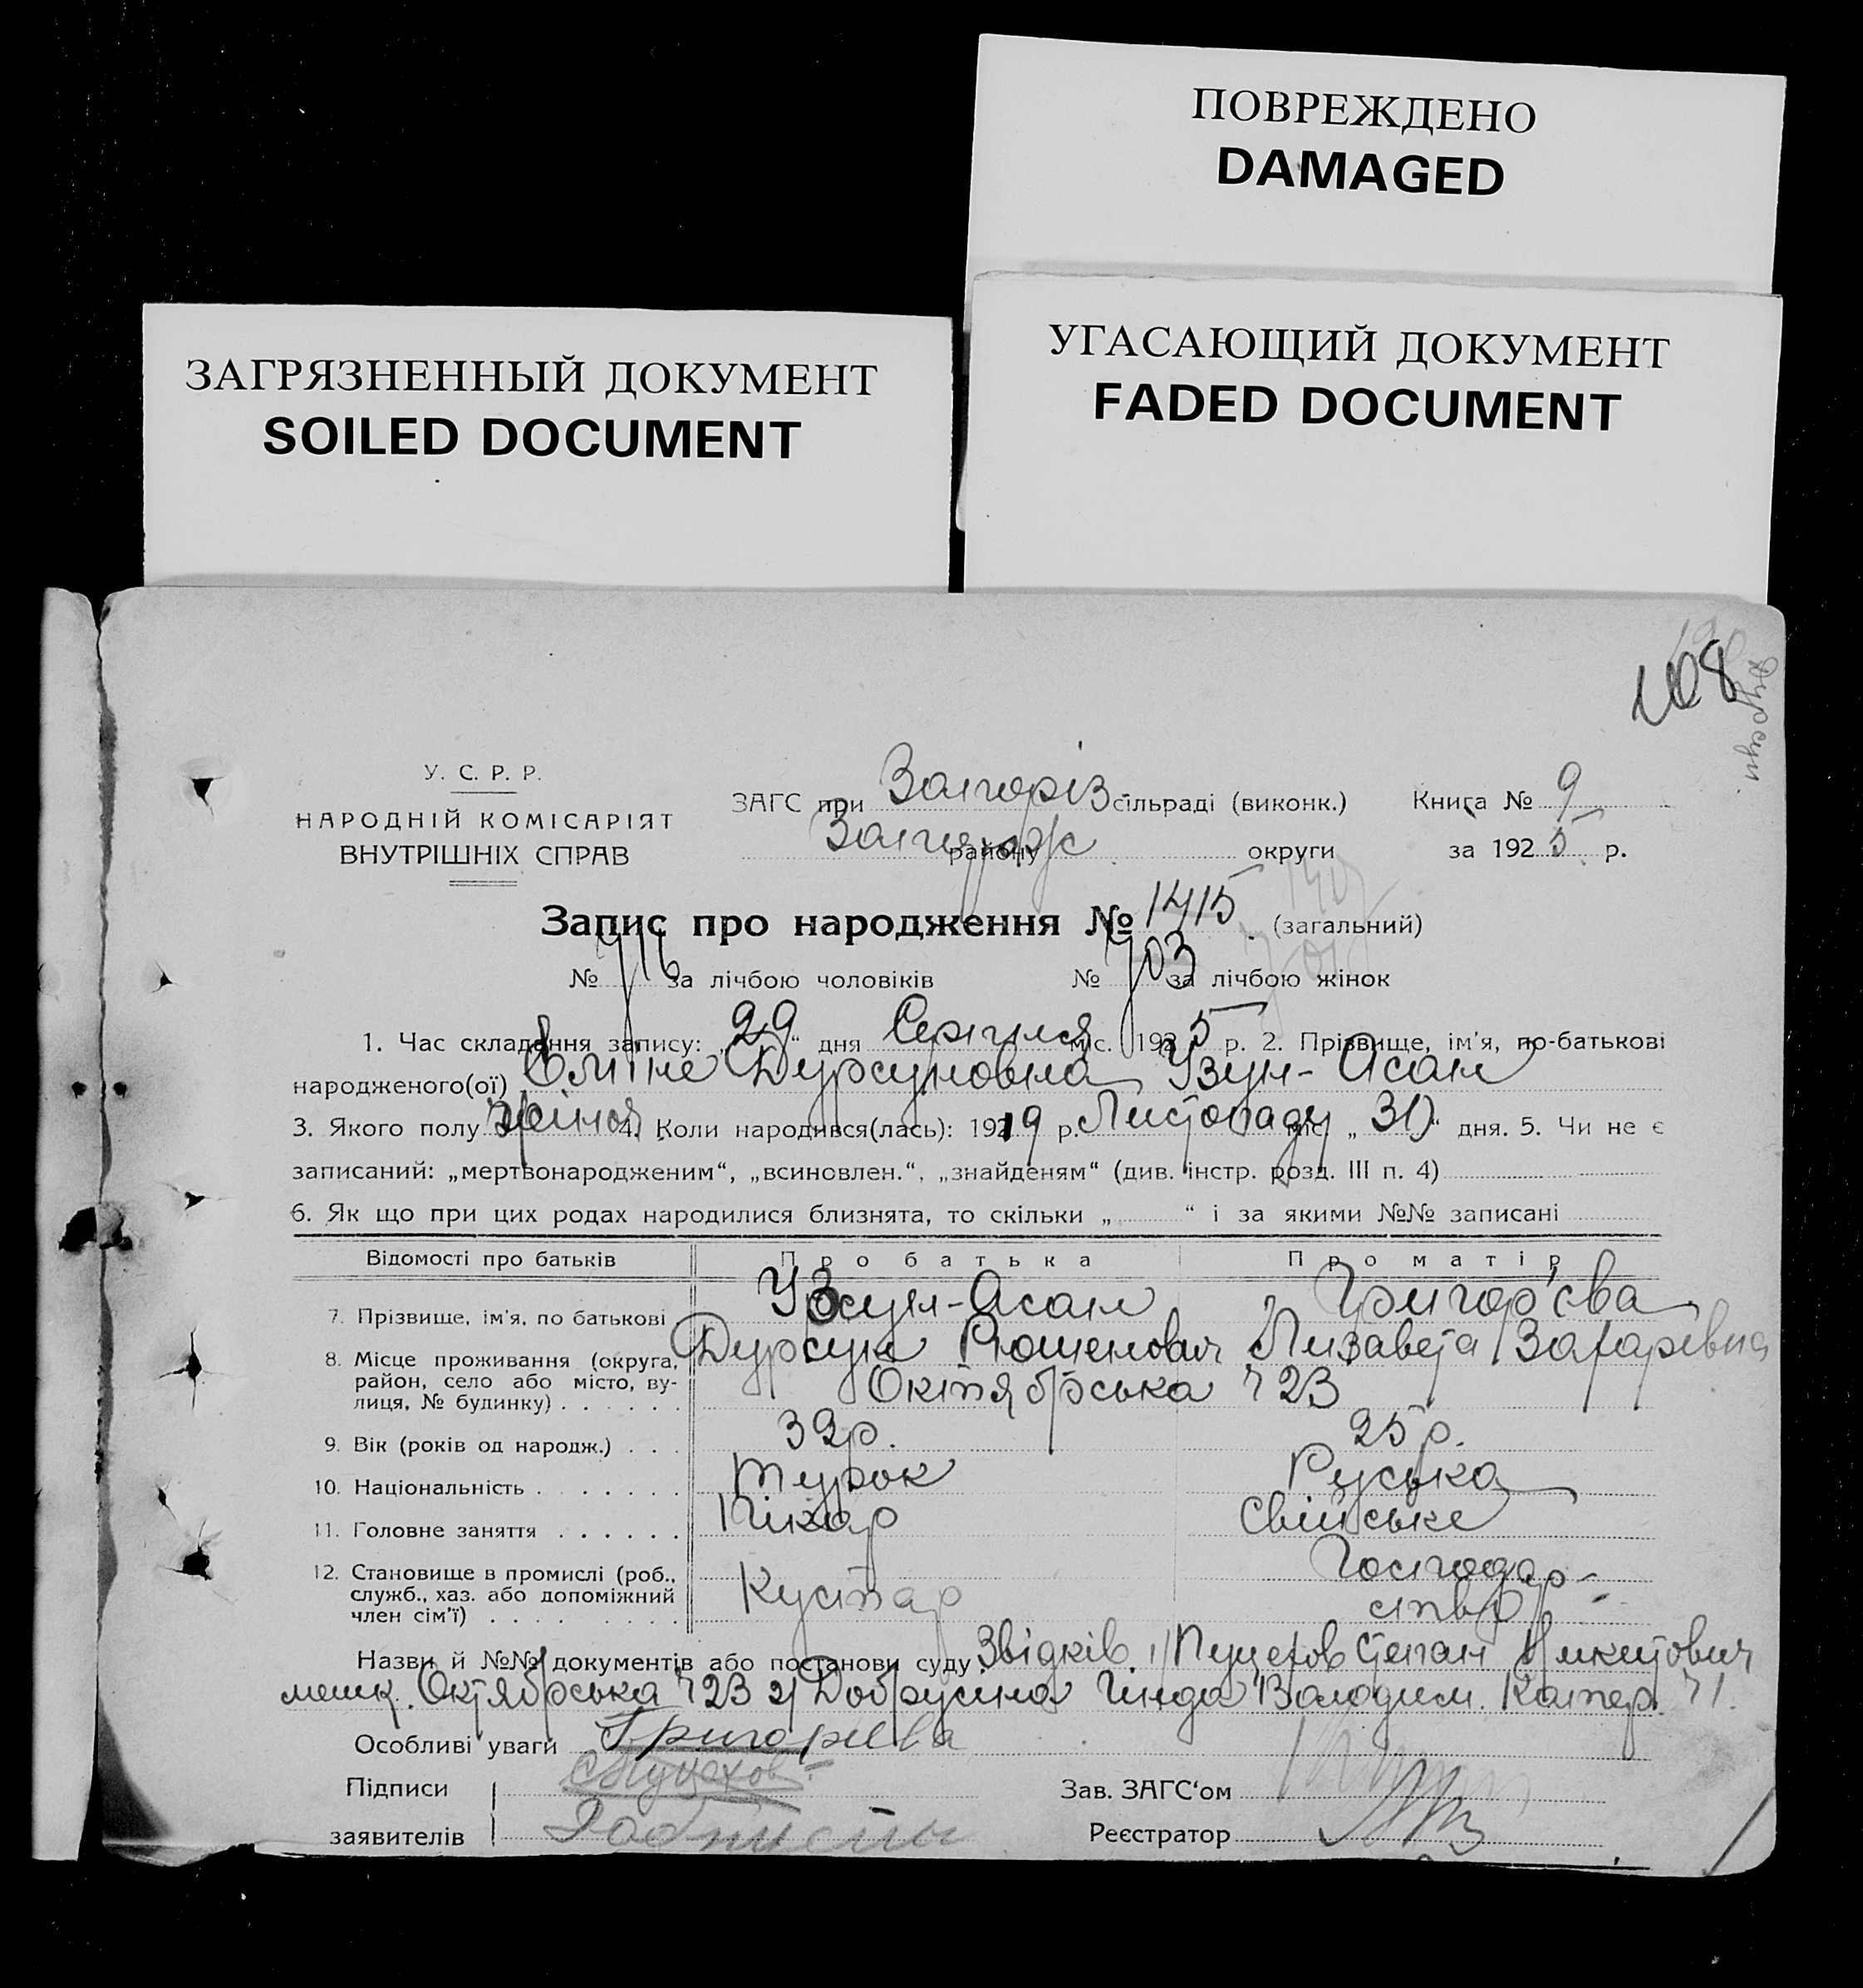 ПОВРЕЖДЕНО
DAMAGED
ЗАГРЯЗНЕННЫЙ ДОКУМЕНТ
SOILED DOCUMENT
УГАСАЮЩИЙ ДОКУМЕНТ
FADED DOCUMENT
108
Дурсун
У. С. Р. Р.
НАРОДНІЙ КОМІСАРІЯТ
ВНУТРІШНІХ СПРАВ
ЗАГС при Запоріз сільраді (виконк.) Книга № 9
району округи за 1925 р.
Запис про народження № 1415 (загальний)
№ 716 за лічбою чоловіків № 703 за лічбою жінок
1. Час складання запису: „29“ дня Серпня міс. 1925 р. 2. Прізвище, ім'я, по-батькові
народженого(ої) Еміне Дурсуновна Узун-Асан
3. Якого полу жіноч 4. Коли народився(лась): 1919 р. Листопаду міс. „30“ дня. 5. Чи не є
записаний: „мертвонародженим“, „всиновлен.“, „знайденям“ (див. інстр. розд. III п. 4)
6. Як що при цих родах народилися близнята, то скільки „ “ і за якими №№ записані
Відомості про батьків Про батька Про матір
7. Прізвище, ім'я, по батькові Узун-Асан Григор'єва
Дурсун Лизавета Захарівна
8. Місце проживання (округа, район, село або місто, вулиця, № будинку) Октябрська ч 23
9. Вік (років од народж.) 32р. 25 р.
10. Національність Турок Руська
11. Головне заняття Пікар Свійське
12. Становище в промислі (роб., служб., хаз. або допоміжний член сім'ї) Кустар Господар-
ство
Назви й №№ документів або постанови суду Звідків 1) Степан Микитович
мешк. Октябрська ч 23 2) Добрусина Гинда Володим. ч 1.
Особливі уваги Григорьева
Підписи
заявителів
Зав. ЗАГС'ом
Реєстратор